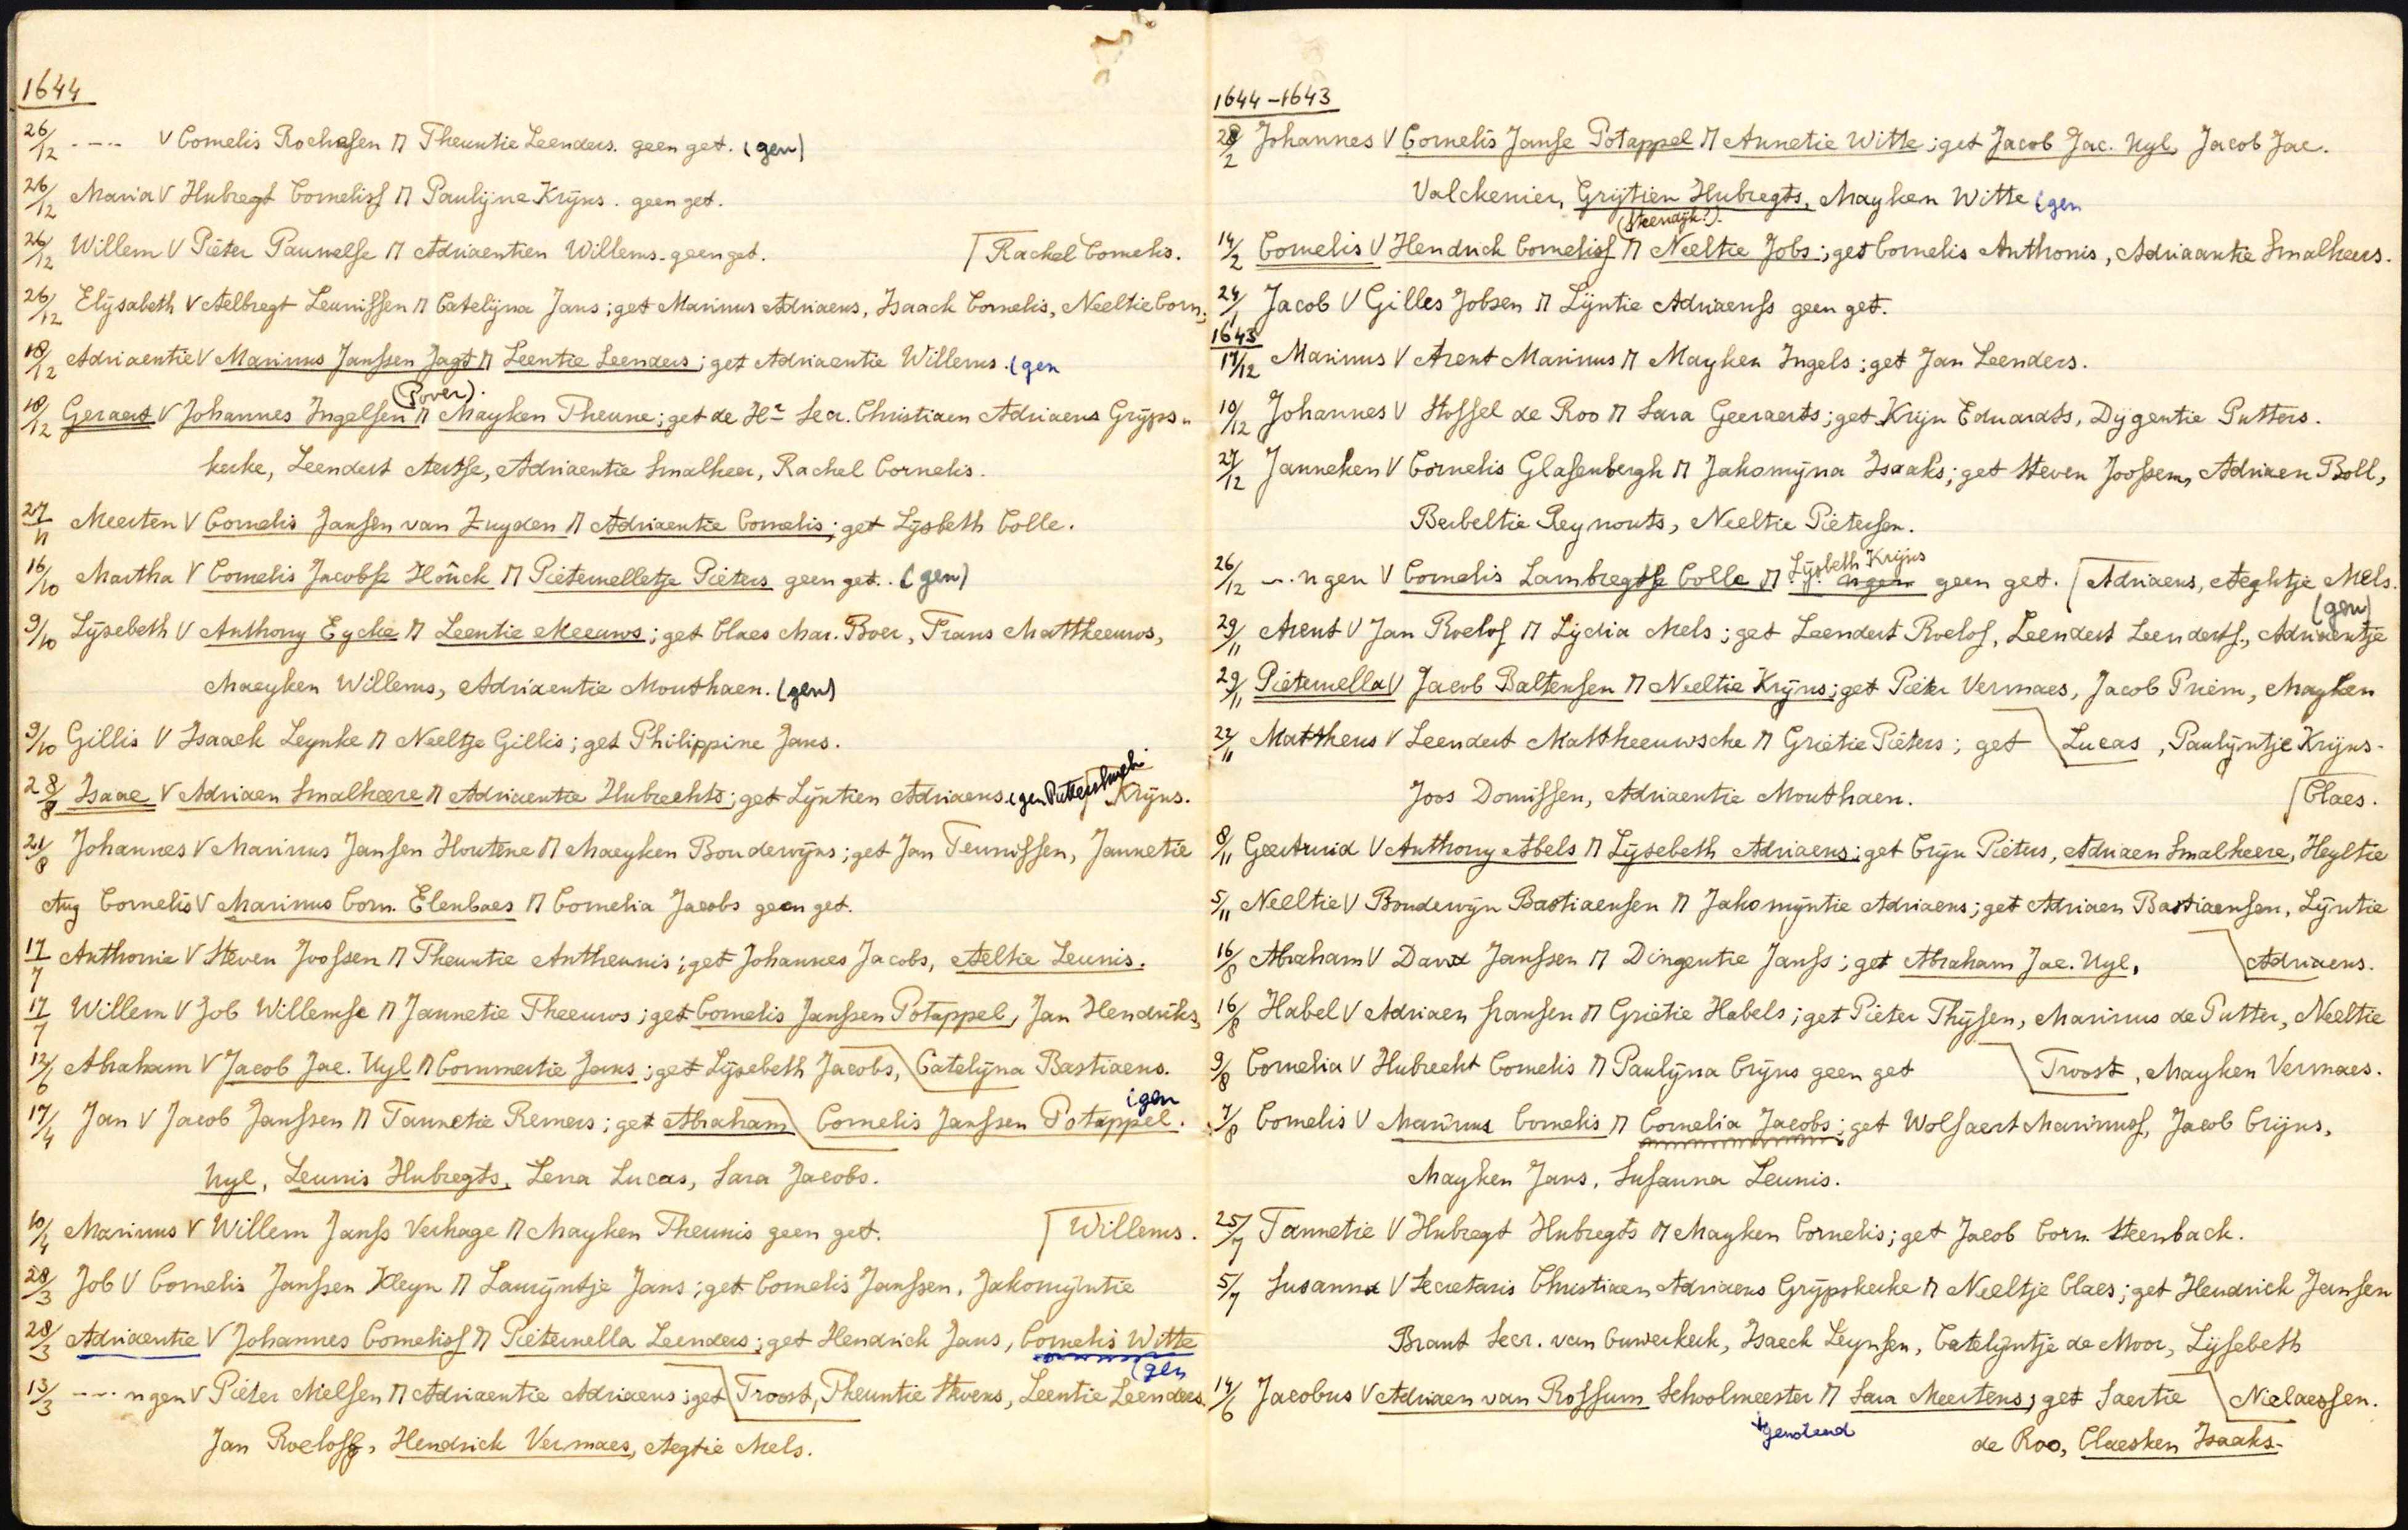 1644
26/12 ---- V Cornelis Rochesen M Theuntie Leenders. geen get. (gen)
26/12 Maria V Hubregt Cornelisf M Paulijne Krijns. geen get.
26/12 Willem V Pieter Pauwelse M Adriaentien Willems. geen get. [Rachel Cornelis.
26/12 Elijsabeth V Aelbregt Leunissen M Catelijna Jans; get Marinus Adriaens, Isaack Cornelis, Neeltie Corn.;
18/12 Adriaentie V Marinus Janssen Jagt M Leentie Leenders; get Adriaentie Willems. (gen
(Pover).
18/12 Geraert V Johannes Ingelsen M Mayken Theune; get de Hr Secr. Christiaen Adriaens Grijps-
kerke, Leendert Aertse, Adriaentie Smalheer, Rachel Cornelis.
27/11 Meerten V Cornelis Jansen van Zuyden M Adriaentie Cornelis; get Lijsbeth Colle.
16/10 Martha V Cornelis Jacobse Hoûck M Pieternelletje Pieters geen get. (gen)
9/10 Lijsebeth V Anthony Eycke M Leentie Meeuws; get Claes Mar. Boer, Frans Mattheeuws,
Maeyken Willems, Adriaentie Mouthaen. (gen)
9/10 Gillis V Isaack Leynke M Neeltje Gillis; get Philippine Jans.
28/8 Isaac V Adriaen Smalheere M Adriaentie Hubrechts; get Lijntien Adriaens (gen Krijns.
21/8 Johannes V Marinus Jansen Houtene M Maeyken Boudewijns; get Jan Teunissen, Jannetie
Aug Cornelis V Marinus Corn. Elenbaes M Cornelia Jacobs geen get.
17/7 Anthonie V Steven Joossen M Theuntie Antheunis; get Johannes Jacobs, Aeltie Leunis.
17/7 Willem V Job Willemse M Jannetie Theeuws; get Cornelis Janssen Potappel, Jan Hendriks,
12/6 Abraham V Jacob Jac. Uyl M Commertie Jans; get Lijsebeth Jacobs, \Catelijna Bastiaens.
(gen
17/4 Jan V Jacob Janssen M Tannetie Remers; get Abraham \Cornelis Janssen Potappel.
Uyl, Leunis Hubregts, Lena Lucas, Sara Jacobs.
10/4 Marinus V Willem Janss Verhage M Mayken Theunis geen get. [Willems.
28/3 Job V Cornelis Janssen Kleyn M Laurijntje Jans; get Cornelis Janssen, Jakomijntie
28/3 Adriaentie V Johannes Cornelisf M Pieternella Leenders; get Hendrick Jans, Cornelis Witte
(gen
13/3 ---- ngen V Pieter Melsen M Adriaentie Adriaens; get \Troost, Theuntie Stevens, Leentie Leenders.
Jan Roeloss, Hendrick Vermaes, Aegtie Mels.
1644-1643
28/2 Johannes V Cornelis Janse Potappel M Annetie Witte; get Jacob Jac. Uyl, Jacob Jac.
Valckenier, Grijtien Hubregts, Mayken Witte (gen
(Steendijk?).
14/2 Cornelis V Hendrick Cornelisf M Neeltie Jobs; get Cornelis Anthonis, Adriaantie Smalheers.
24/1 Jacob V Gilles Jobsen M Lijntie Adriaenss geen get.
1643
17/12 Marinus V Arent Marinus M Mayken Ingels; get Jan Leenders.
10/12 Johannes V Stoffel de Roo M Sara Geeraerts; get Krijn Eduardts, Dijgentie Putters.
27/12 Janneken V Cornelis Glasenbergh M Jakomijna Isaaks; get Steven Joossens, Adriaen Boll,
Berbeltie Reynouts, Neeltie Pietersen.
Lijsbeth Krijns
26/12 --- ngen V Cornelis Lambregtse Colle M ngen geen get. [Adriaens, Aeghtje Mels.
(gen)
29/11 Arent V Jan Roelof M Lydia Mels; get Leendert Roelof, Leendert Leendertf., Adriaentje
29/11 Pieternella V Jacob Baltensen M Neeltie Krijns; get Pieter Vermaes, Jacob Priem, Mayken
22/11 Mattheus V Leendert Mattheeuwsche M Grietie Pieters; get \Lucas, Paulijntje Krijns-
Joos Domissen, Adriaentie Mouthaen. [Claes.
8/11 Geertruid V Anthony Abels M Lijsebeth Adriaens; get Crijn Pieters, Adriaen Smalheere, Heyltie
5/11 Neeltie V Boudewijn Bastiaensen M Jakomijntie Adriaens; get Adriaen Bastiaensen, Lijntie
16/8 Abraham V David Janssen M Dingentie Janss; get Abraham Jac. Uyl, \Adriaens.
16/8 Habel V Adriaen Fransen M Grietie Habels; get Pieter Thijsen, Marinus de Putter, Neeltie
9/8 Cornelia V Hubrecht Cornelis M Paulijna Crijns geen get \Troost, Mayken Vermaes.
7/8 Cornelis V Marinus Cornelis M Cornelia Jacobs; get Wolfaert Marinusf, Jacob Crijns,
Mayken Jans, Susanna Leunis.
25/7 Tannetie V Hubregt Hubregts M Mayken Cornelis; get Jacob Corn. Steenback.
5/7 Susanna V Secretaris Christiaen Adriaens Grijpskerke M Neeltje Claes; get Hendrick Jansen
Brant Secr. van Ouwerkerk, Isaeck Leynsen, Catelijntje de Moor, Lijsebeth
14/6 Jacobus V Adriaen van Rossum Schoolmeester M Sara Meertens; get Saertie \Nielaessen.
de Roo, Claesken Isaaks.